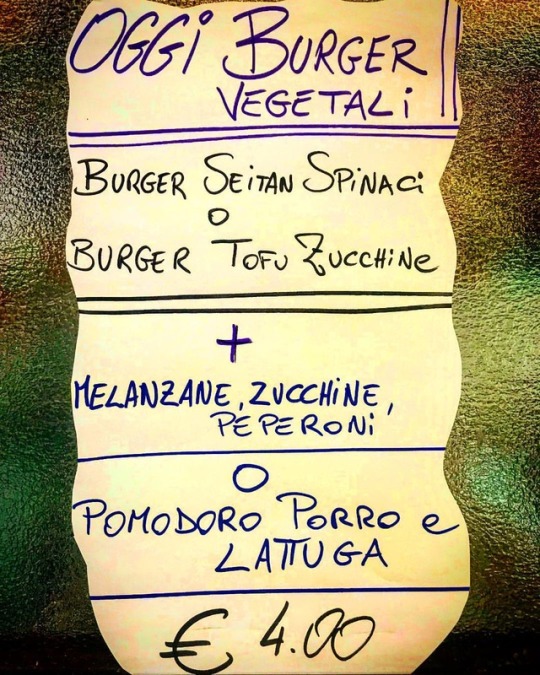 OGGi BURGER
VEGETALi
BURGER SEiTAN SPiNACi
O
BURGER TOFU ZUCCHiNe
+
MELANZANE, ZUCCHiNE,
PEPERONi
O
POMODORO PORRO e
LATTUGA
€ 4.00